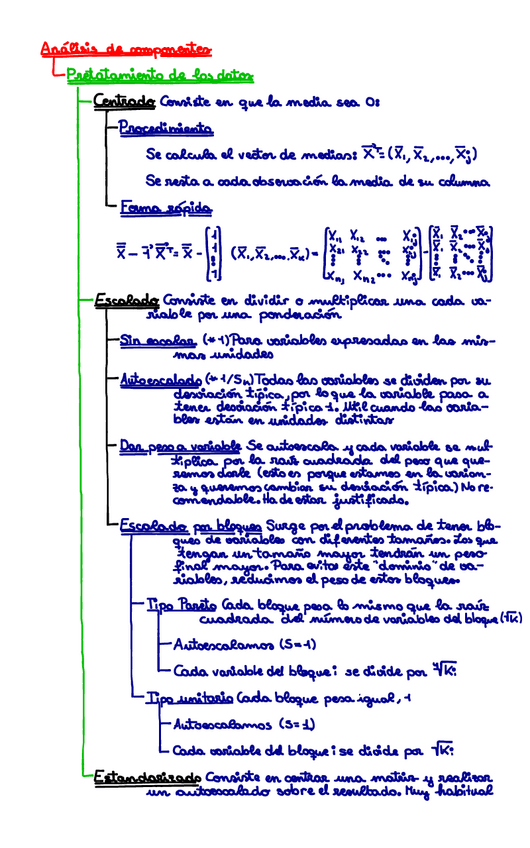 Análisis de componentes
Pretatamiento de los datos
Centrado Consiste en que la media sea 0:
Procedimiento
Se calcula el vector de medias: X̄ᵀ=(X̄₁, X̄₂,..., X̄ⱼ)
Se resta a cada observación la media de su columna
Forma rápida
Escalado Consiste en dividir o multiplicar una cada va-
riable por una ponderación
Sin escalar (*1) Para variables expresadas en las mis-
mas unidades
Autoescalado (*1/Sₖ) Todas las variables se dividen por su
desviación típica, por lo que la variable pasa a
tener desviación típica 1. Util cuando las varia-
bles están en unidades distintas
Dar peso a variable Se autoescala y cada variable se mul-
tiplica por la raíz cuadrada del peso que que-
remos darle (esto es porque estamos en la varian-
za y queremos cambiar su desviación típica) No re-
comendable. Ha de estar justificado.
Escalado por bloques Surge por el problema de tener blo-
ques de variables con diferentes tamaños. Los que
tengan un tamaño mayor tendrán un peso
final mayor. Para evitar este "dominio" de va-
riables, reducimos el peso de estos bloques.
Tipo Pareto Cada bloque pesa lo mismo que la raíz
cuadrada del número de variables del bloque (√K)
Autoescalamos (S=1)
Cada variable del bloque i se divide por ⁴√Kᵢ
Tipo unitario Cada bloque pesa igual, 1
Autoescalamos (S=1)
Cada variable del bloque i se divide por √Kᵢ
Estandarizado Consiste en centrar una matriz y realizar
un autoescalado sobre el resultado. Muy habitual